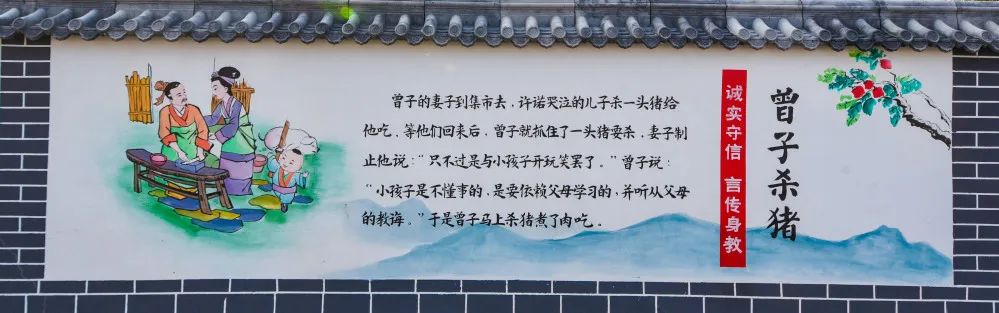 曾子杀猪
诚实守信 言传身教
曾子的妻子到集市去，许诺哭泣的儿子杀一头猪给
他吃，等他们回来后，曾子就抓住了一头猪要杀，妻子制
止他说：“只不过是与小孩子开玩笑罢了。”曾子说：
“小孩子是不懂事的，是要依赖父母学习的，并听从父母
的教诲。”于是曾子马上杀猪煮了肉吃。